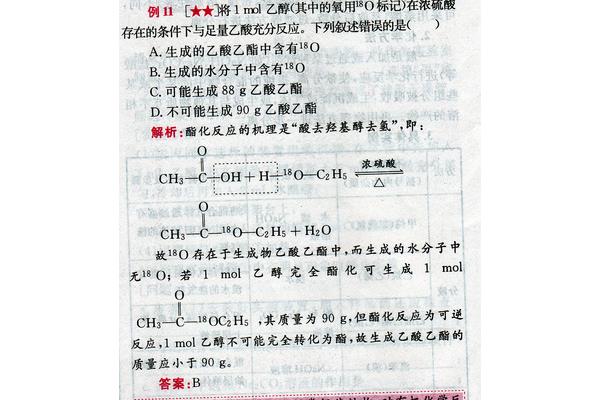 例11 [★★]将1 mol乙醇(其中的氧用¹⁸O标记)在浓硫酸
存在的条件下与足量乙酸充分反应。下列叙述错误的是( )
A.生成的乙酸乙酯中含有¹⁸O
B.生成的水分子中含有¹⁸O
C.可能生成88 g乙酸乙酯
D.不可能生成90 g乙酸乙酯
解析:酯化反应的机理是“酸去羟基醇去氢”,即:
O
CH₃—C—OH+H—¹⁸O—C₂H₅ 浓硫酸 ⇌ △
O
CH₃—C—¹⁸O—C₂H₅+H₂O
故¹⁸O存在于生成物乙酸乙酯中,而生成的水分子中
无¹⁸O;若1 mol乙醇完全酯化可生成1 mol
O
CH₃—C—¹⁸OC₂H₅,其质量为90 g,但酯化反应为可逆
反应,1 mol乙醇不可能完全转化为酯,故生成乙酸乙酯的
质量应小于90 g。
答案:B